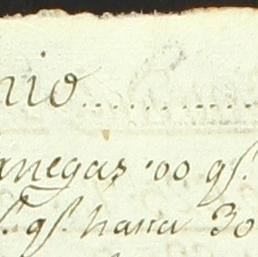 nio............
anegas 00 gs.
s. gs. hasta 30